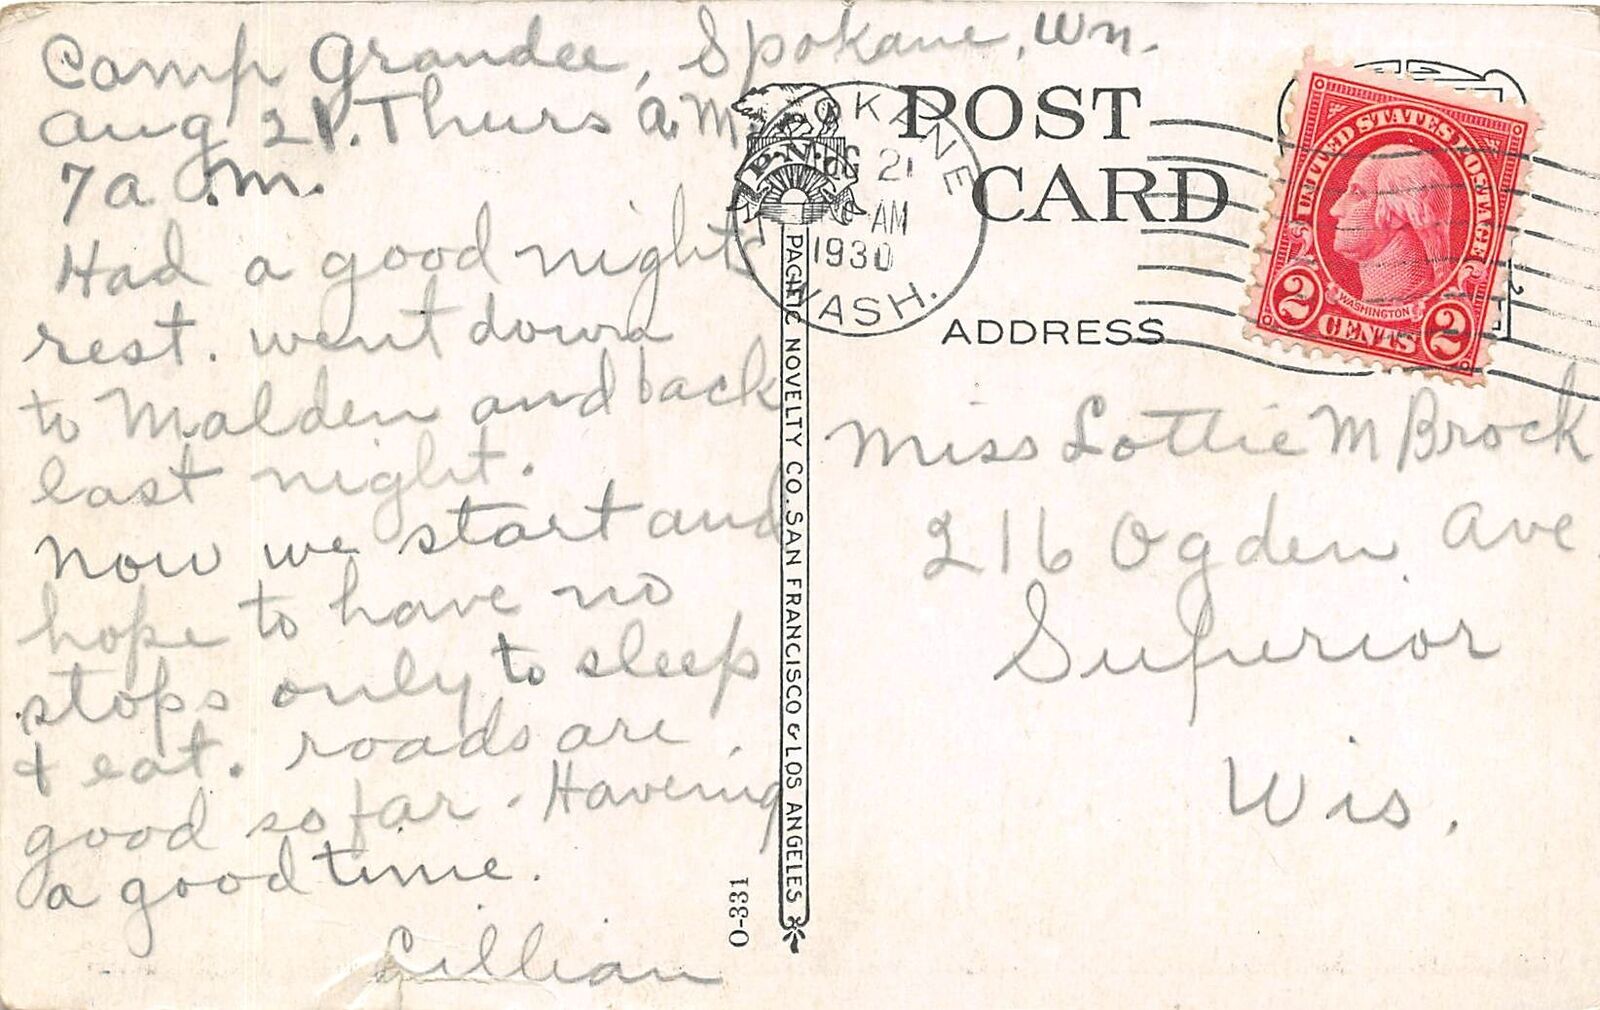 Camp Grandee, Spokane, Wn.
Aug 21. Thurs a.m.
7 a.m.
Had a good nights
rest. went down
to Malden and back
last night.
now we start and
hope to have no
stops only to sleep
& eat. roads are
good so far. Havening
a good time.
Lillian
POST
CARD
ADDRESS
SPOKANE
AUG 21
AM
1930
WASH.
P.N.C.
PACIFIC NOVELTY CO. SAN FRANCISCO & LOS ANGELES
O-331
UNITED STATES POSTAGE
WASHINGTON
2 CENTS 2
Miss Lottie M Brock
216 Ogden Ave.
Superior
Wis.